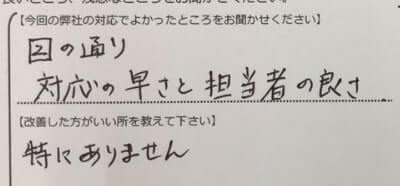 【今回の弊社の対応でよかったところをお聞かせください】
図の通り
対応の早さと担当者の良さ
【改善した方がいい所を教えて下さい】
特にありません